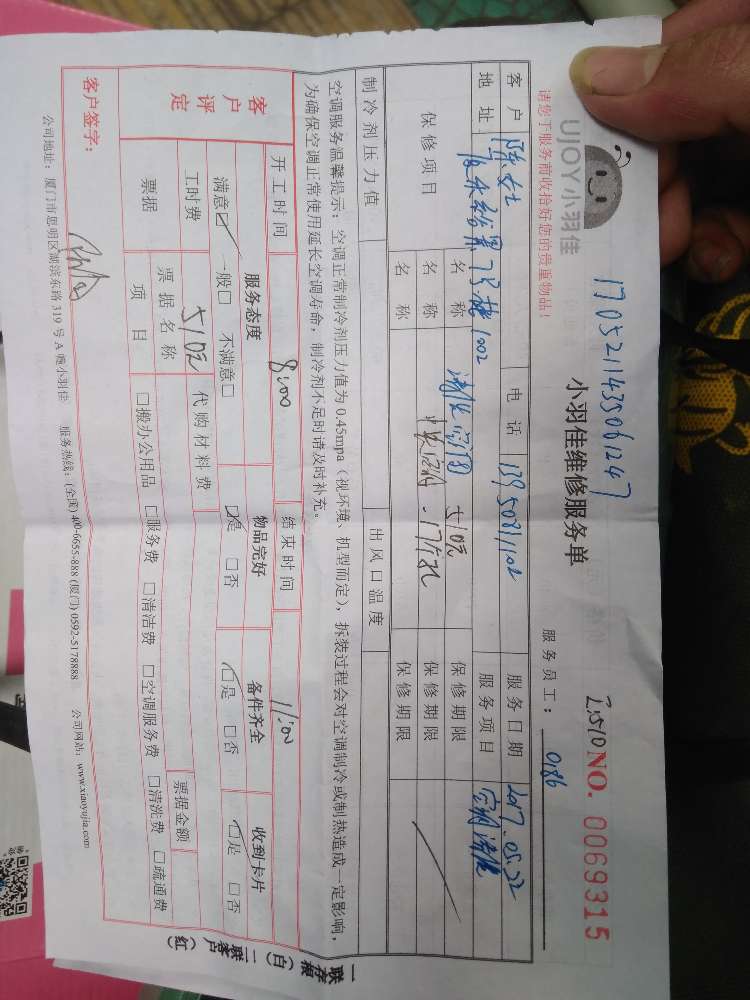 UJOY小羽佳
请您于服务前收拾好您的贵重物品!
1705211435061247
小羽佳维修服务单
服务员工: 0186
2,510 NO. 0069315
客户 陈女士 电话 服务日期 2017.05.22
地址 73 1002 服务项目 空调清洗
保修项目 名称 510元 保修期限
名称 保修期限
名称 保修期限
制冷剂压力值 出风口温度
空调服务温馨提示:空调正常制冷剂压力值为0.45mpa(视环境、机型而定),拆装过程会对空调制冷或制热造成一定影响,
为确保空调正常使用延长空调寿命,制冷剂不足时请及时补充。
开工时间 8:00 结束时间 11:00
客户评定 服务态度 物品完好 备件齐全 收到卡片
满意☑ 一般□ 不满意□ ☑是 □否 ☑是 □否 ☑是 □否
工时费 510元 代购材料费
票据 票据名称 票据金额
项目 □搬办公用品 □服务费 □清洁费 □空调服务费 □清洗费 □疏通费
客户签字:
公司地址:厦门市思明区湖滨东路319号A 小羽佳 服务热线:(全国)400-6655-888 (厦门)0592-5178888 公司网站:www.xiaoyujia.com
一联存根(白) 二联客户(红)